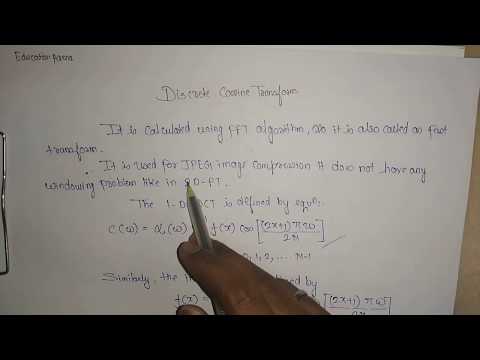 Education Aasna
Discrete Cosine Transform
It is calculated using FFT algorithm, so it is also called as fast
transform.
It is used for JPEG image compression it does not have any
windowing problem like in 2D-FT.
The 1-D DCT is defined by equⁿ:
C(ω) = α(ω) f(x) cos[(2x+1)πω/2N]
0,1,2,... N-1
Similarly, the by
f(x) = [(2x+1)πω/2N]